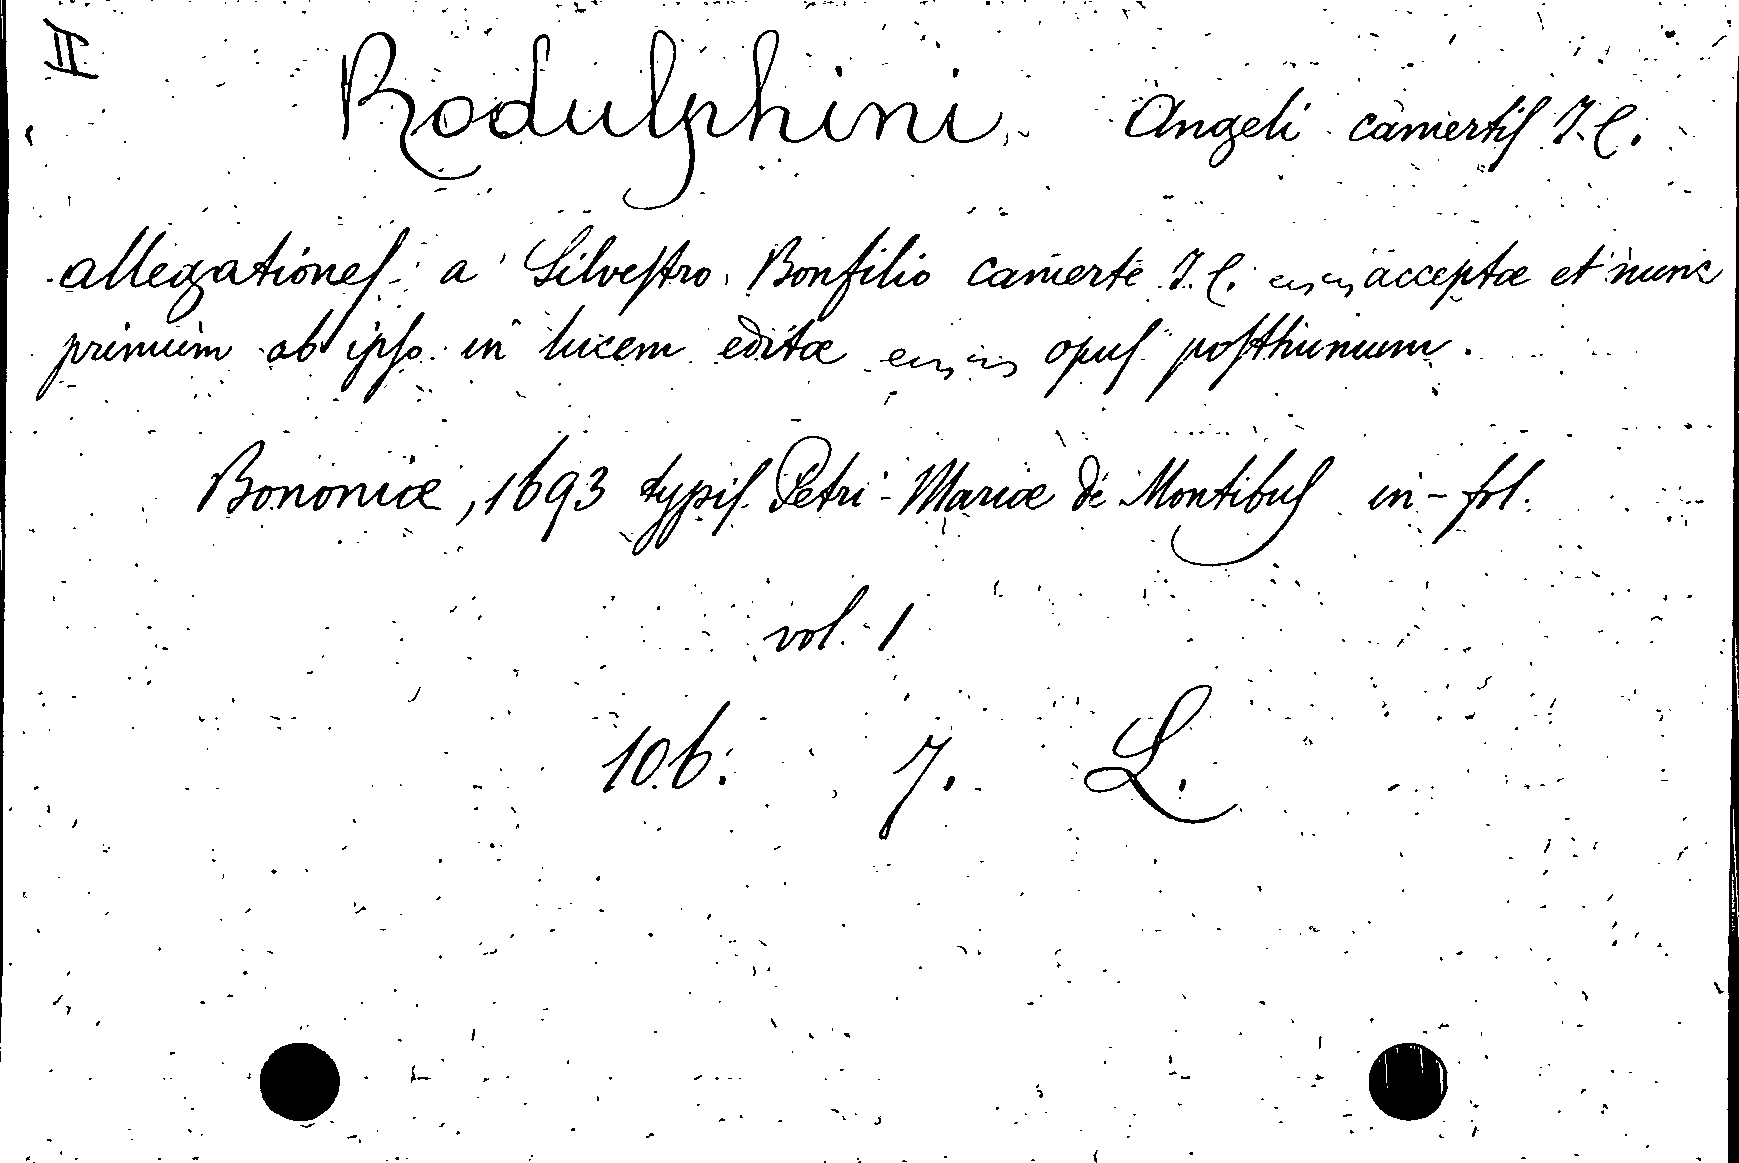 II
Rodulphini Angeli camertis J.C.
allegationes a Silvestro Bonfilio camerte J.C. acceptæ et nunc
primum ab ipso in lucem editæ opus posthumum.
Bononiæ, 1693 typis Petri-Mariæ de Montibus in-fol.
vol. 1
10.6. 7. L.